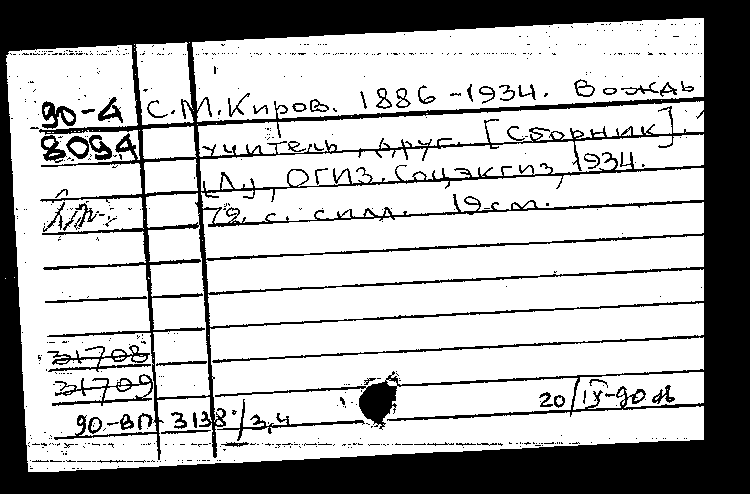 90-4 С.М.Киров. 1886-1934. Вождь
8094 учитель, друг. [Сборник].
[Л.], ОГИЗ. Соцэкгиз, 1934.
72 с. с илл. 19 см.
31708
31709
90-ВП-3138/3,4
20/IX-90